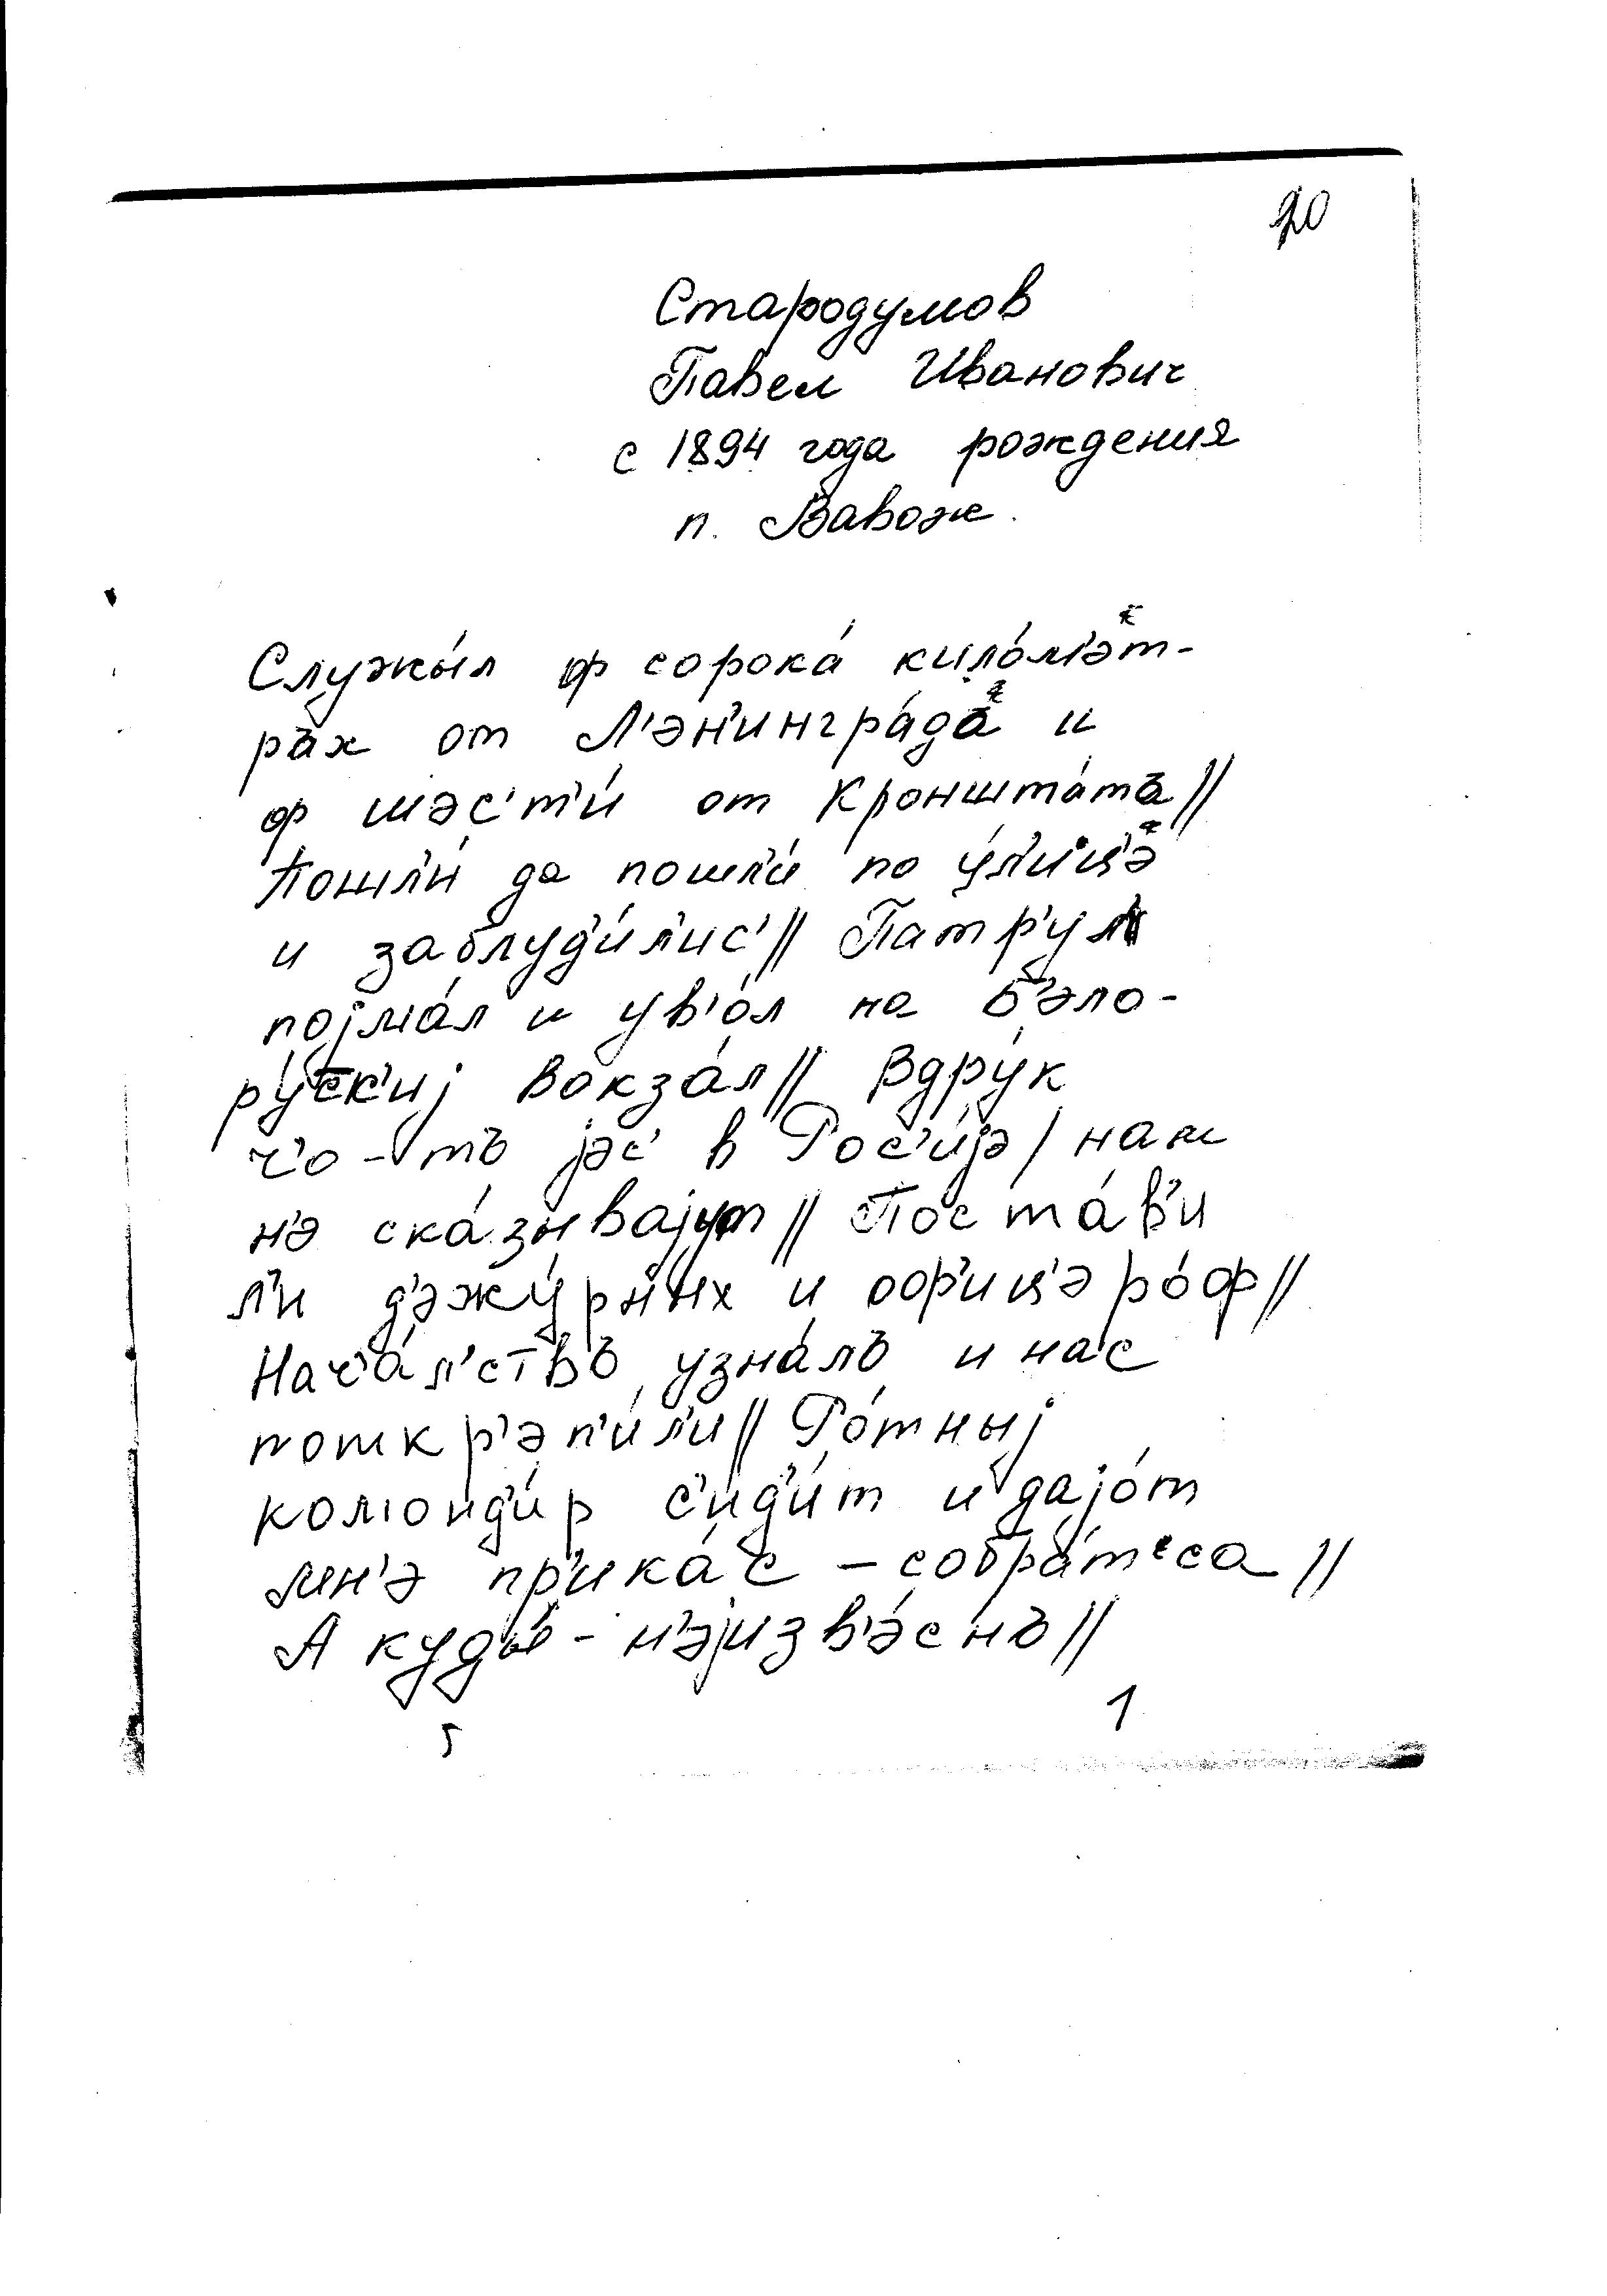 20
Стародумов
Павел Иванович
с 1894 года рождения
п. Вавож.
Служы́л ф сорока́ кило́м'эт-
рах от Л'эн'ингра́да и
ф шэс'т'и́ от Кроншта́тъ //
Пошл'и́ да пошл'и́ по у́л'ицэ
и заблуд'и́л'ис' // Патр'ул
појма́л и ув'о́л на б'эло-
ру́ск'иј вокза́л // Вдру́к
ч'о-тъ јэс' в Рос'и́јэ / нам
н'э ска́зывајут // Поста́в'и
л'и д'эжу́рных и оф'ицэро́ф //
Нач'а́л'ствъ узна́лъ и нас
поткр'эп'и́л'и // Ро́тныј
комонд'и́р с'ид'и́т и дајо́т
мн'э пр'ика́с – собра́т'са //
А куды́ - н'эјизв'э́снъ //
1